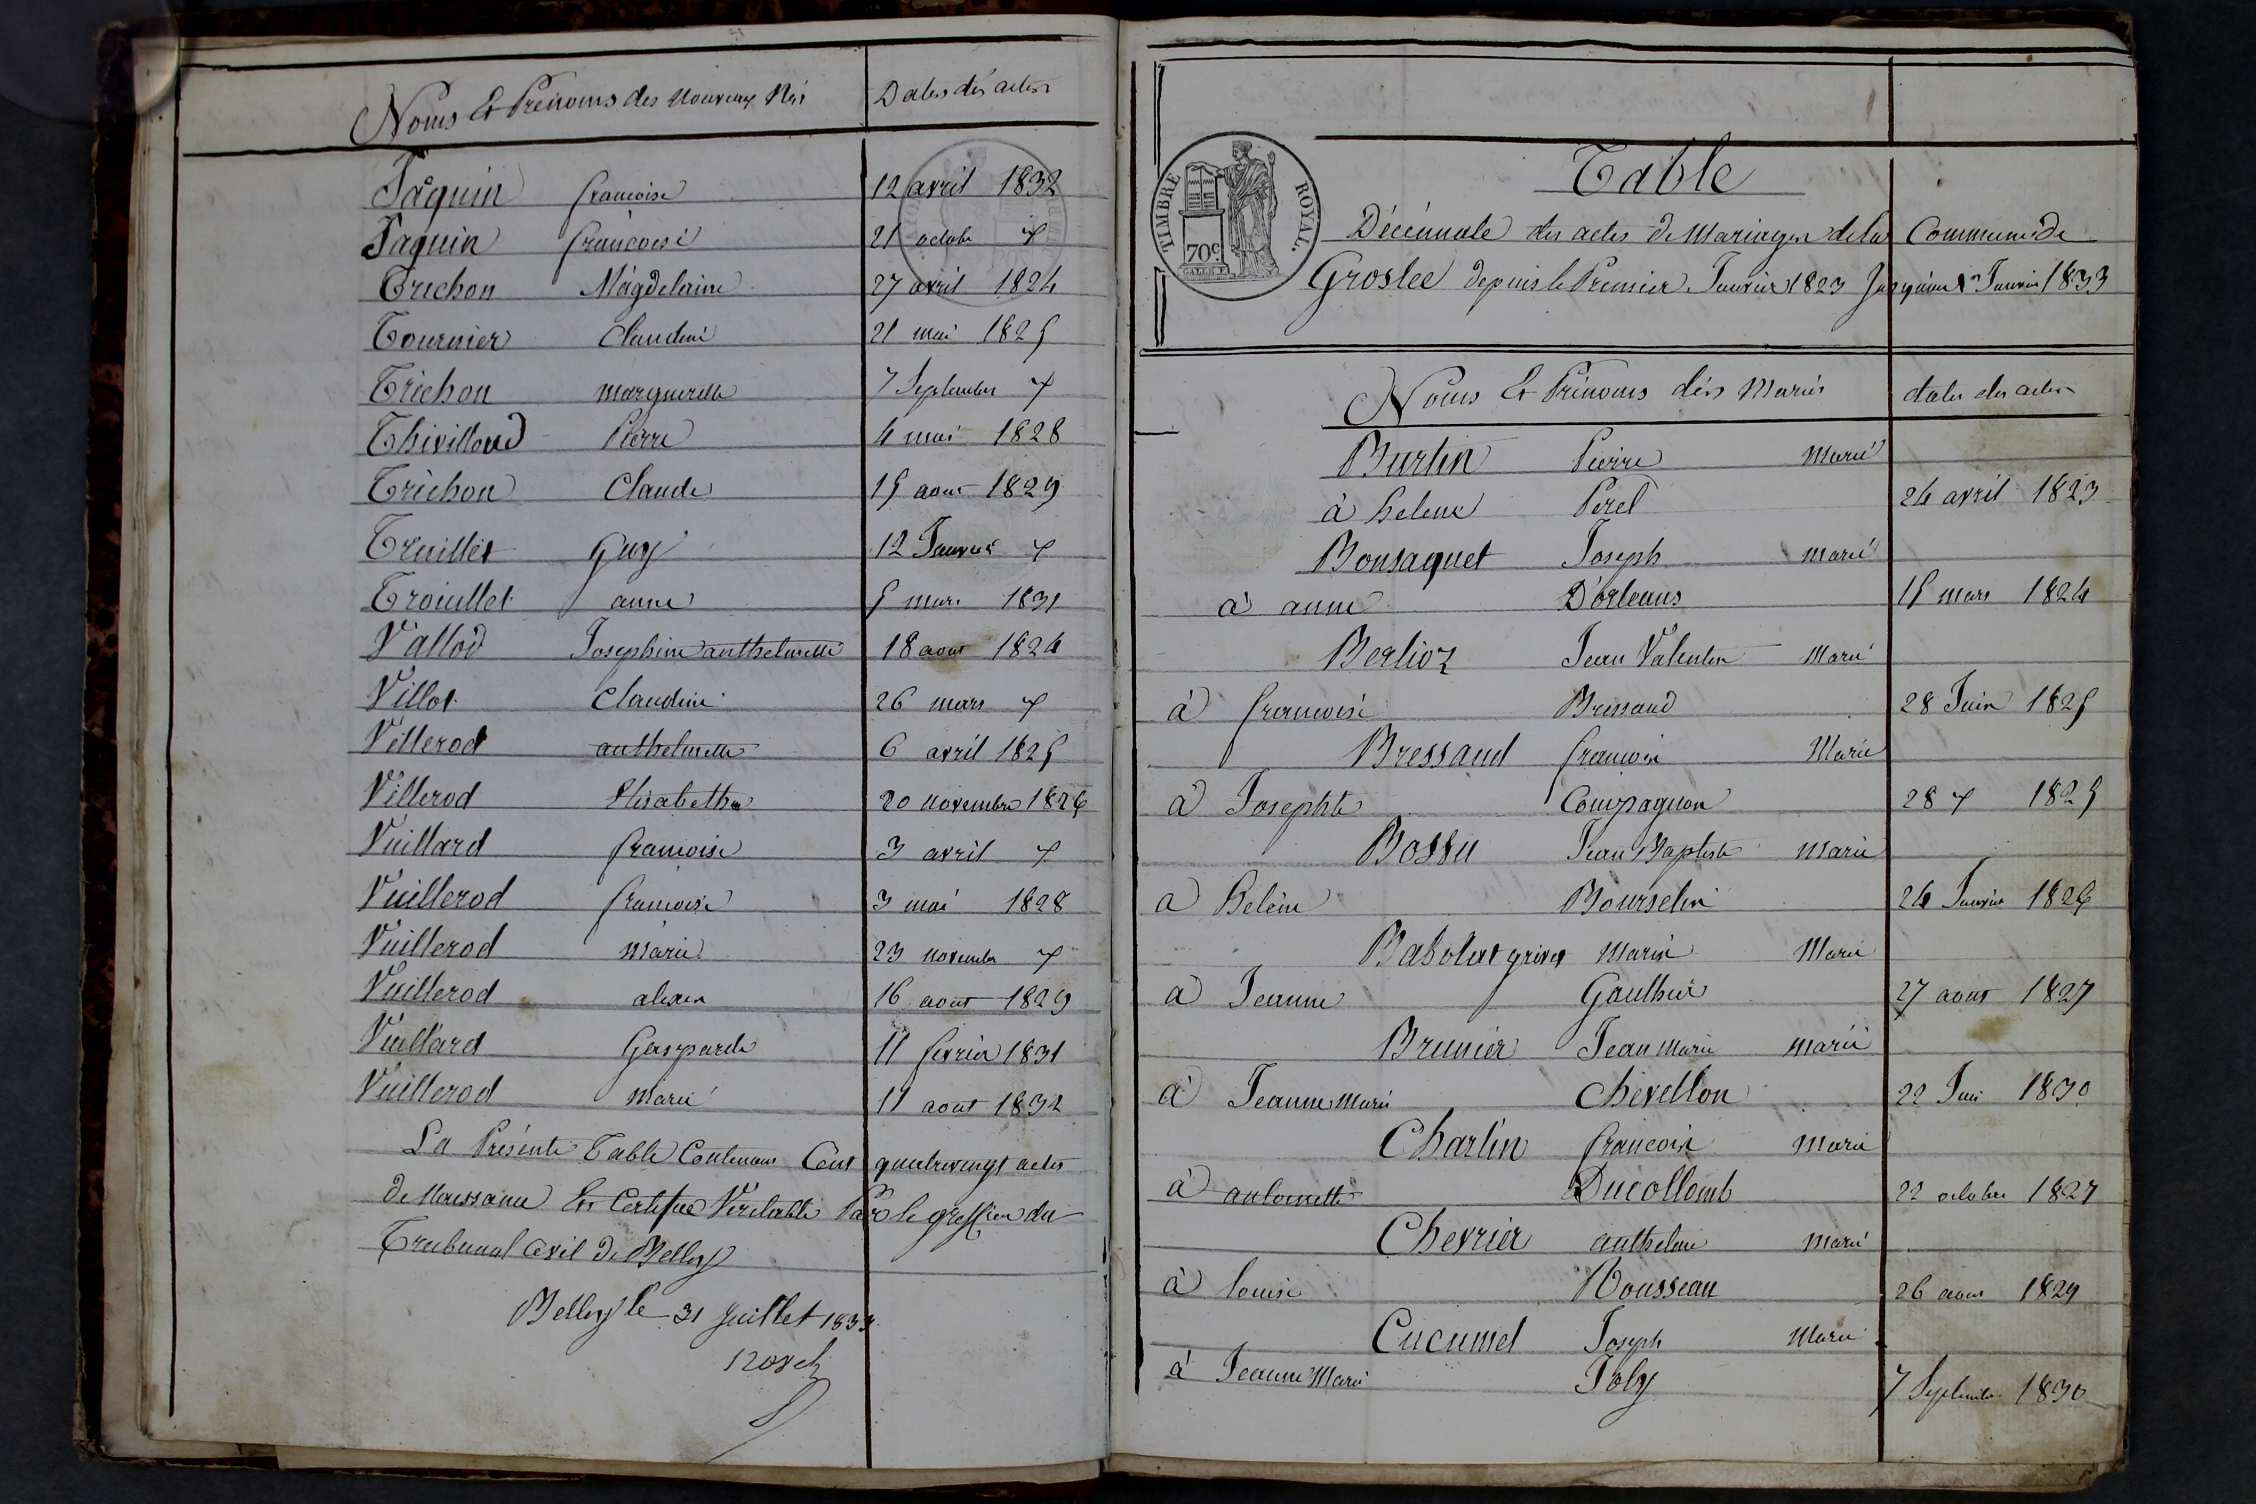 Noms Et Prénoms des Nouveaux Nés Dates des actes
Jaquin francoise 12 avril 1832
Jaquin francoise 21 octobre
Trichon Magdelaine 27 avril 1824
Tournier Claudine 21 mai 1825
Trichon margueritte 7 Septembre
Thivilloud Pierre 4 mai 1828
Trichon Claude 15 aout 1829
Truillet Guy 12 Janvier
Trouillet anne 5 mars 1831
Vallod Josephine anthelmette 18 aout 1824
Villot Claudine 26 mars
Villerod anthelmette 6 avril 1825
Villerod Elisabeth 20 novembre 1826
Vuillard francoise 3 avril
Vuillerod francoise 3 mai 1828
Vuillerod Marie 23 novembre
Vuillerod alexis 16 aout 1829
Vuillard Gasparde 11 fevrier 1831
Vuillerod Marie 11 aout 1832
La Présente Table Contenant Cent quatrevingt actes
de Naissance Est Certifiée Veritable Par le greffier du
Tribunal Civil de Belley
Belley le 31 juillet 1833
TIMBRE ROYAL.
70c
Table
Décennale des actes de Mariages de la Commune de
Groslée depuis le Premier Janvier 1823 Jusqu'au 1er Janvier 1833
Noms Et Prénoms des Mariés dates des actes
Burlin Pierre Marié
à helene Perel 24 avril 1823
Bonsaquet Joseph marié
à anne D'orleans 15 mars 1824
Berlioz Jean Valentin Marié
à francoise Bressaud 28 Juin 1825
Bressaud francois Marié
à Josephte Compagnon 28 1825
Bossu Jean Baptiste Marié
a helène Bourselin 24 Janvier 1826
Babolat grivet Marin Marié
à Jeanne Gaulthier 27 aout 1827
Brunier Jean Marie marié
à Jeanne Marie Chevellon 22 Juin 1830
Charlin francois Marié
à antoinette Ducollomb 22 octobre 1827
Chevrier anthelme marié
à louise Rousseau 26 aout 1829
Cucumel Joseph Marié
à Jeanne Marie Joly 7 Septembre 1830